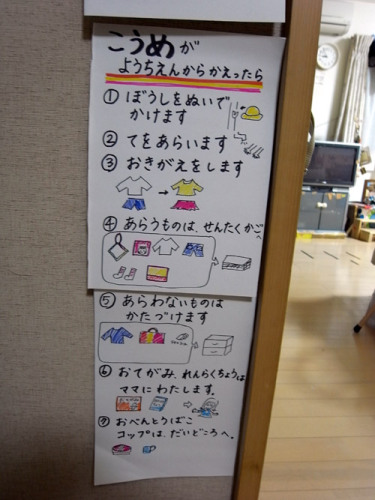 こうめが
ようちえんからかえったら
① ぼうしをぬいで
かけます
② てをあらいます
③ おきがえをします
④ あらうものは、せんたくかごへ
⑤ あらわないものは
かたづけます
⑥ おてがみ、れんらくちょうは
ママにわたします。
⑦ おべんとうばこ
コップは、だいどころへ。